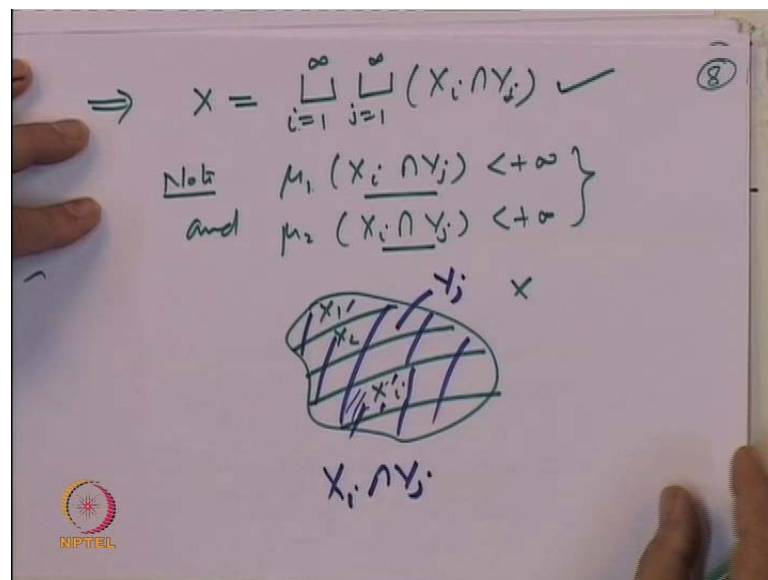 ⑧
⟹ X = ⊔_{i=1}^{∞} ⊔_{j=1}^{∞} (X_i ∩ Y_j) ✓
Note μ₁ (X_i ∩ Y_j) < +∞ }
and μ₂ (X_i ∩ Y_j) < +∞
Y_j X
X₁
X₂
X_i
X_i ∩ Y_j
NPTEL